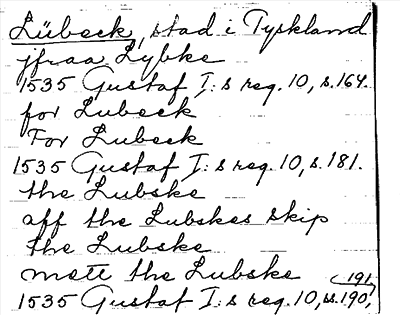 Lübeck, stad i Tyskland
jfraa Lybke
1535 Gustaf I:s reg. 10, s. 164.
for Lubeck
For Lubeck
1535 Gustaf I:s reg. 10, s. 181.
the Lubske
aff the Lubskes skip
the Lubske
mett the Lubske
191
1535 Gustaf I:s reg. 10, ss. 190,